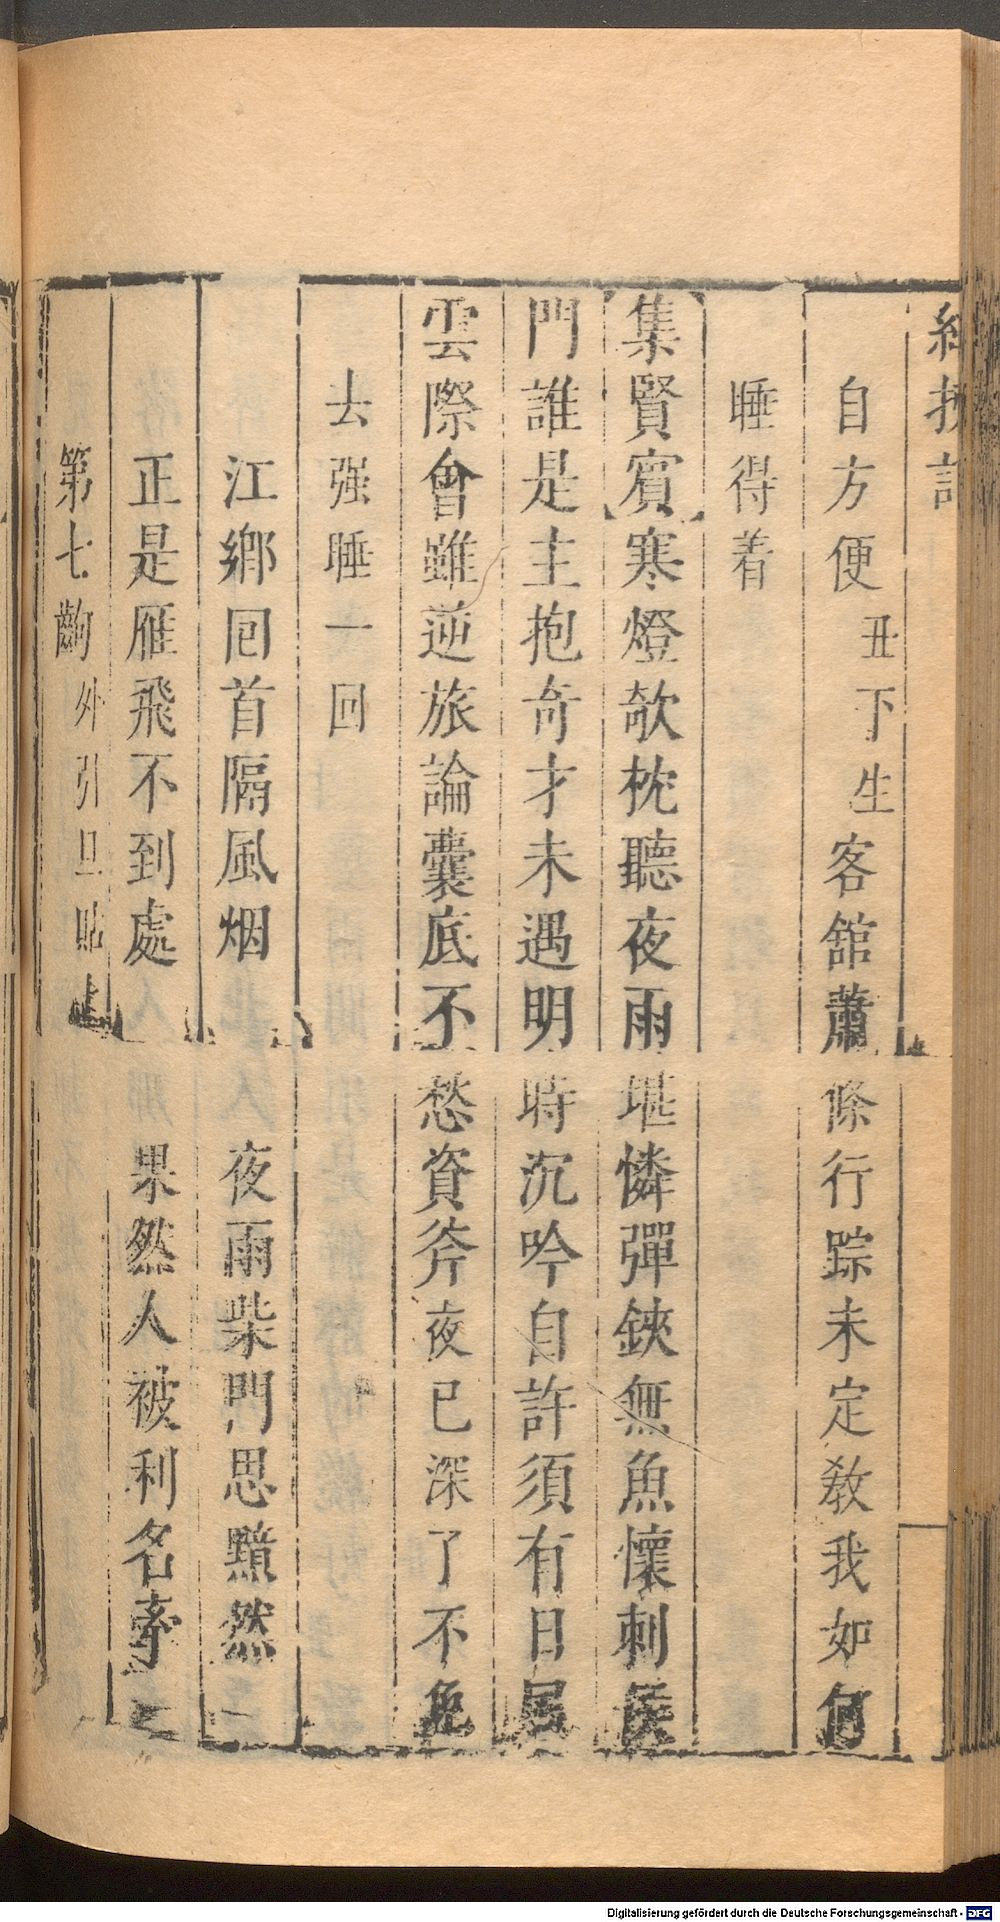 紅拂記
自方便丑下生客館蕭條行踪未定教我如何
睡得着
集賢賓寒燈欹枕聽夜雨堪憐彈鋏無魚懷刺侯
門誰是主抱奇才未遇明時沉吟自許須有日風
雲際會雖逆旅論囊底不愁資斧夜已深了不免
去强睡一回
江鄉囘首隔風烟 夜雨柴門思黯然
正是雁飛不到處 果然人被利名牽
第七齣外引旦貼上
Digitalisierung gefördert durch die Deutsche Forschungsgemeinschaft - DFG